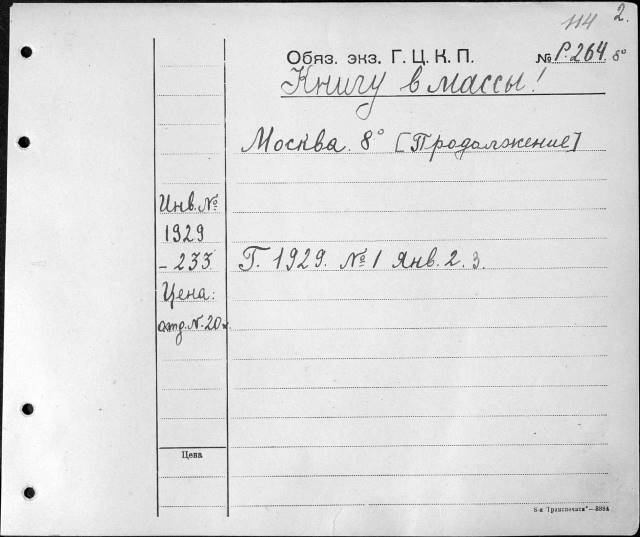 114 2.
Обяз. экз. Г. Ц. К. П. № Р. 264. 8°
Книгу в массы!
Москва. 8° [Продолжение]
Инв. №
1929
- 233. Г. 1929. № 1 Янв. 2. 3.
Цена:
отд. №-20к.
Цена
"Транспечати"—3884